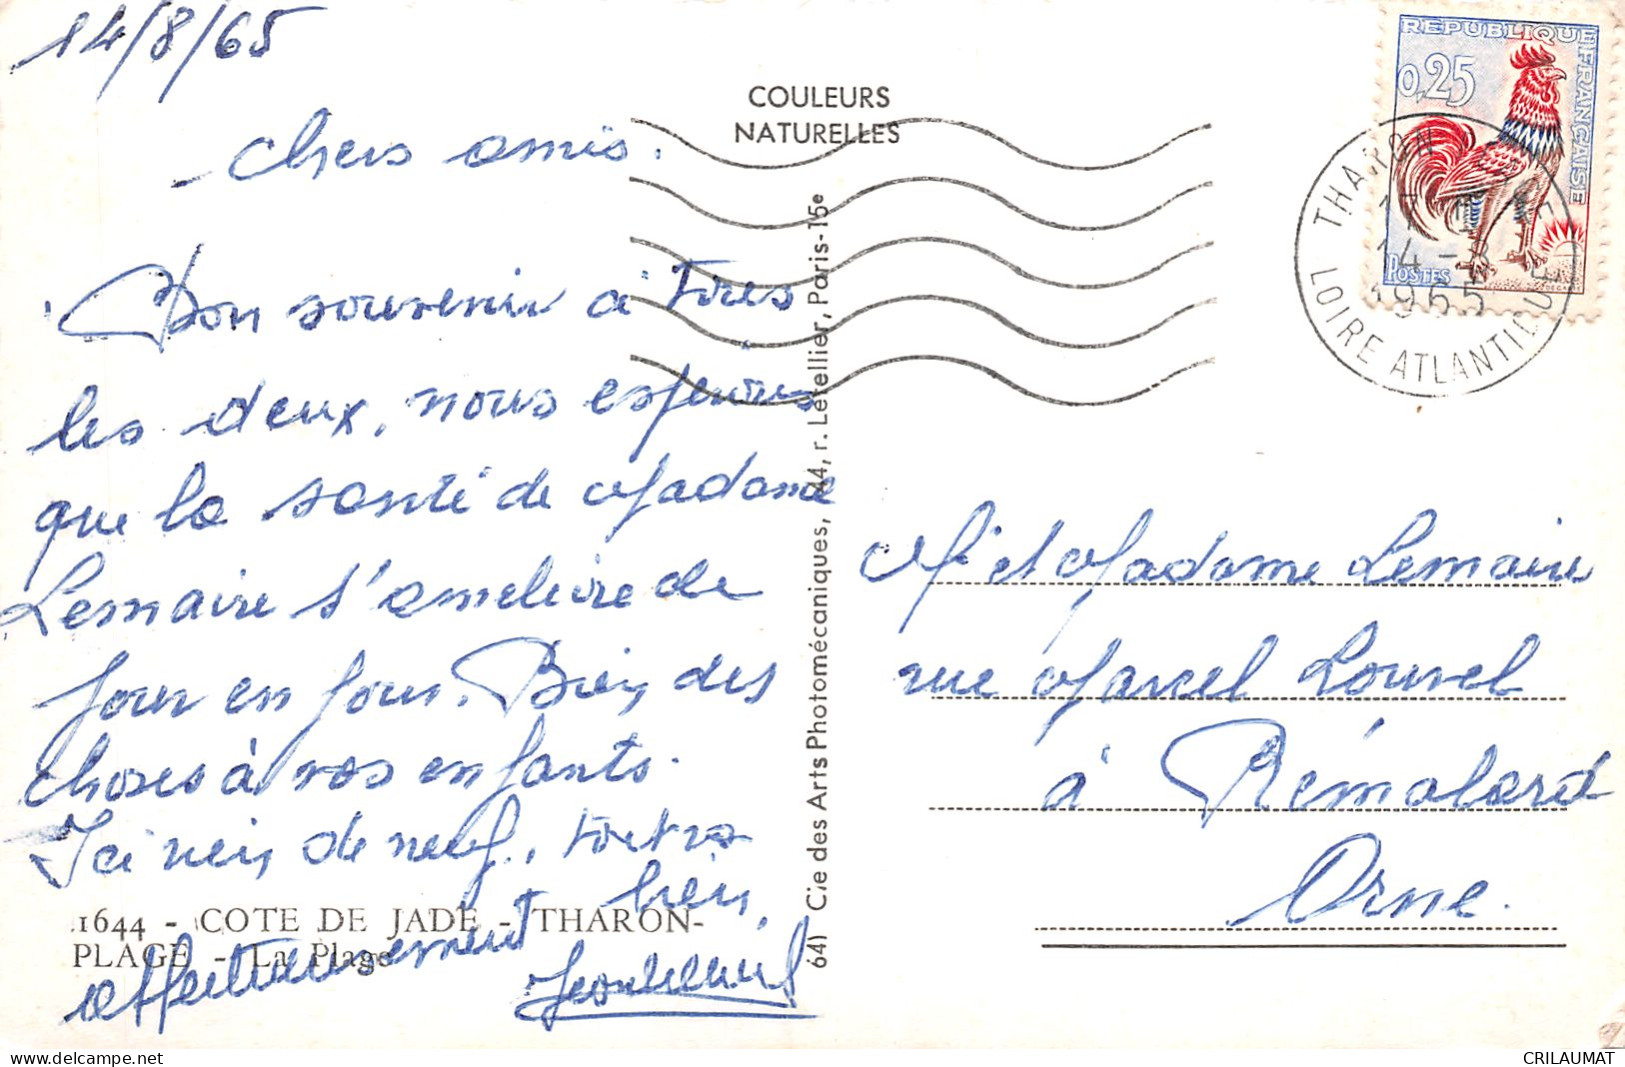 14/8/65
Chers amis.
Bon souvenir à tous
les deux, nous espérons
que la santé de Madame
Lemaire s'améliore de
jour en jour. Bien des
choses à vos enfants.
Ici rien de neuf, tout va
bien,
affectueusement
1644 - COTE DE JADE - THARON-
PLAGE - La Plage
COULEURS
NATURELLES
64) Cie des Arts Photomécaniques, 44, r. Letellier, Paris-15e
REPUBLIQUE FRANÇAISE
0,25
POSTES
THARON PLAGE
14-8
1965
LOIRE ATLANTIQUE
Mr et Madame Lemaire
rue Marcel Louvel
à Rémalard
Orne.
CRILAUMAT